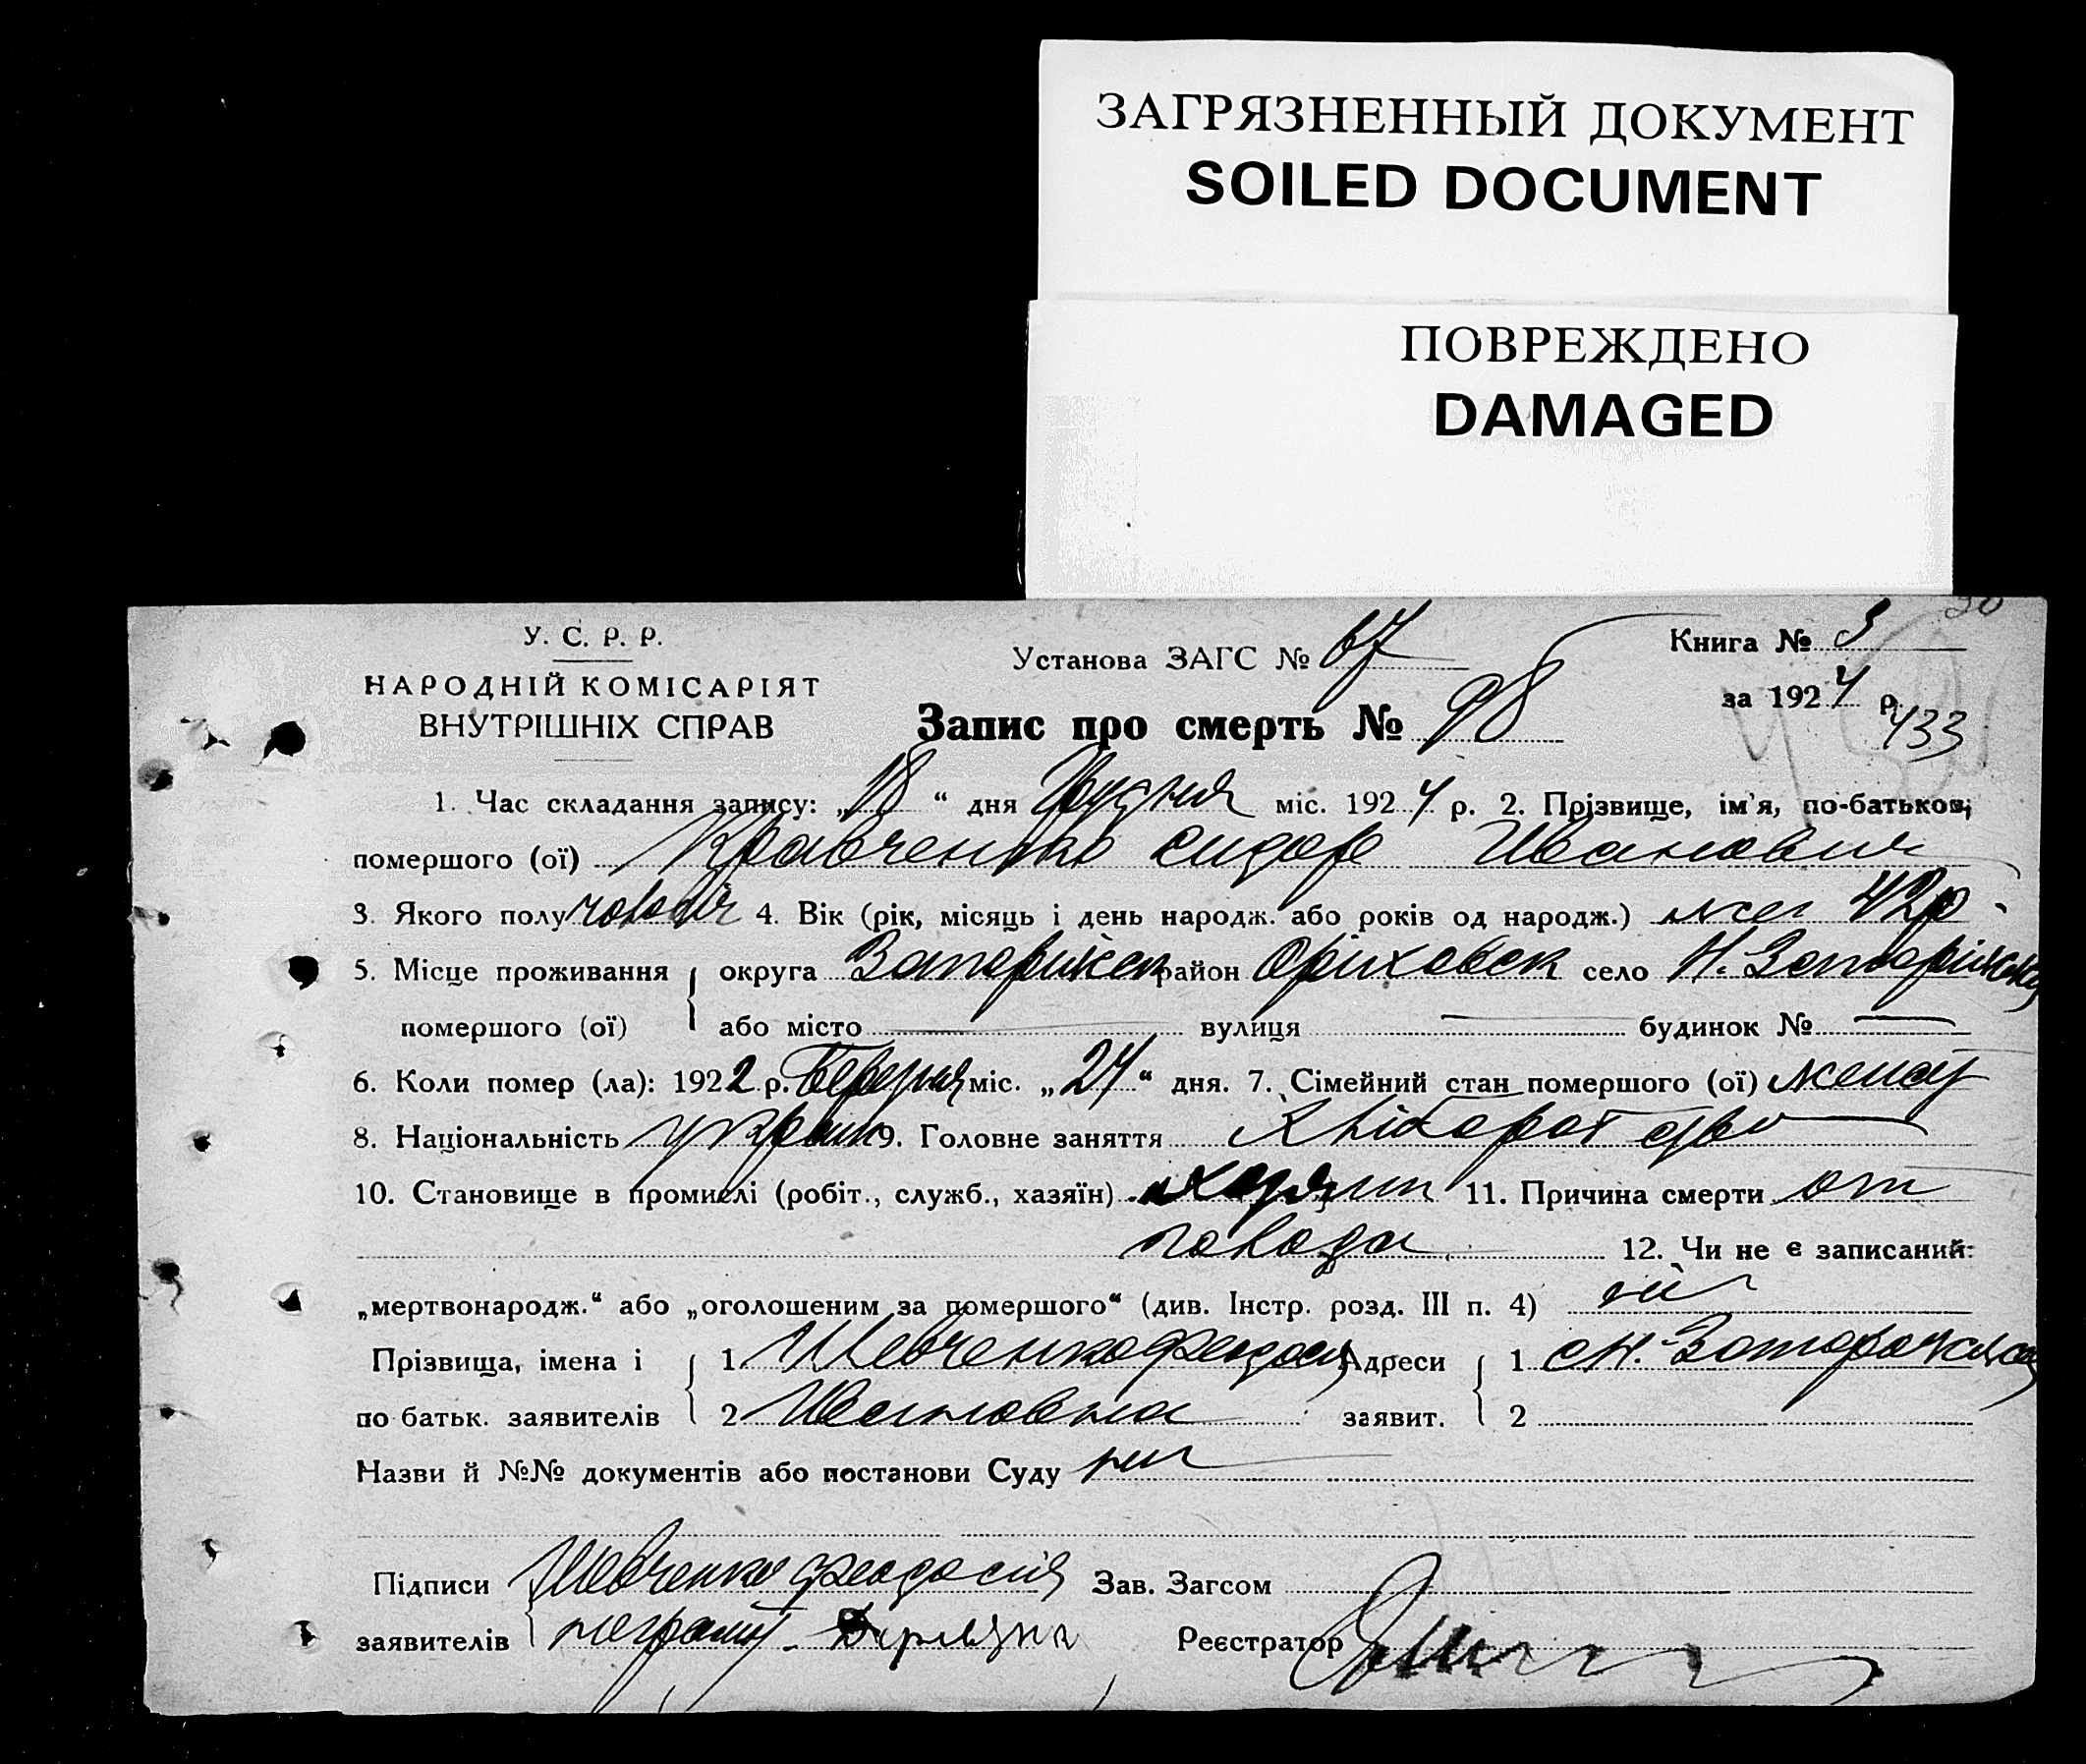 ЗАГРЯЗНЕННЫЙ ДОКУМЕНТ
SOILED DOCUMENT
ПОВРЕЖДЕНО
DAMAGED
У. С. Р. Р.
НАРОДНІЙ КОМІСАРІЯТ
ВНУТРІШНІХ СПРАВ
Установа ЗАГС № 67
Книга № 3
за 1924 р.
433
Запис про смерть № 98
1. Час складання запису: „18“ дня Грудня міс. 1924 р. 2. Прізвище, ім'я, по-батькові
помершого (ої) Кравченко Сидор Иванович
3. Якого полу чоловіч 4. Вік (рік, місяць і день народж. або років од народж.) 42 р.
5. Місце проживання округа Запоріжськ район Оріховськ село Н. Запоріжжя
помершого (ої) або місто — вулиця — будинок № —
6. Коли помер (ла): 1922 р. Березня міс. „24“ дня. 7. Сімейний стан помершого (ої) женат
8. Національність україн 9. Головне заняття Хліборобство
10. Становище в промислі (робіт., служб., хазяїн) хазяин 11. Причина смерти от
голода 12. Чи не є записаний:
„мертвонародж.“ або „оголошеним за помершого“ (див. Інстр. розд. III п. 4) ні
Прізвища, імена і 1 Шевченко Феодосия Адреси 1
по батьк. заявителів 2 Ивановна заявит. 2
Назви й №№ документів або постанови Суду
Підписи Шевченко Феодосия Зав. Загсом
заявителів неграмот. Реєстратор